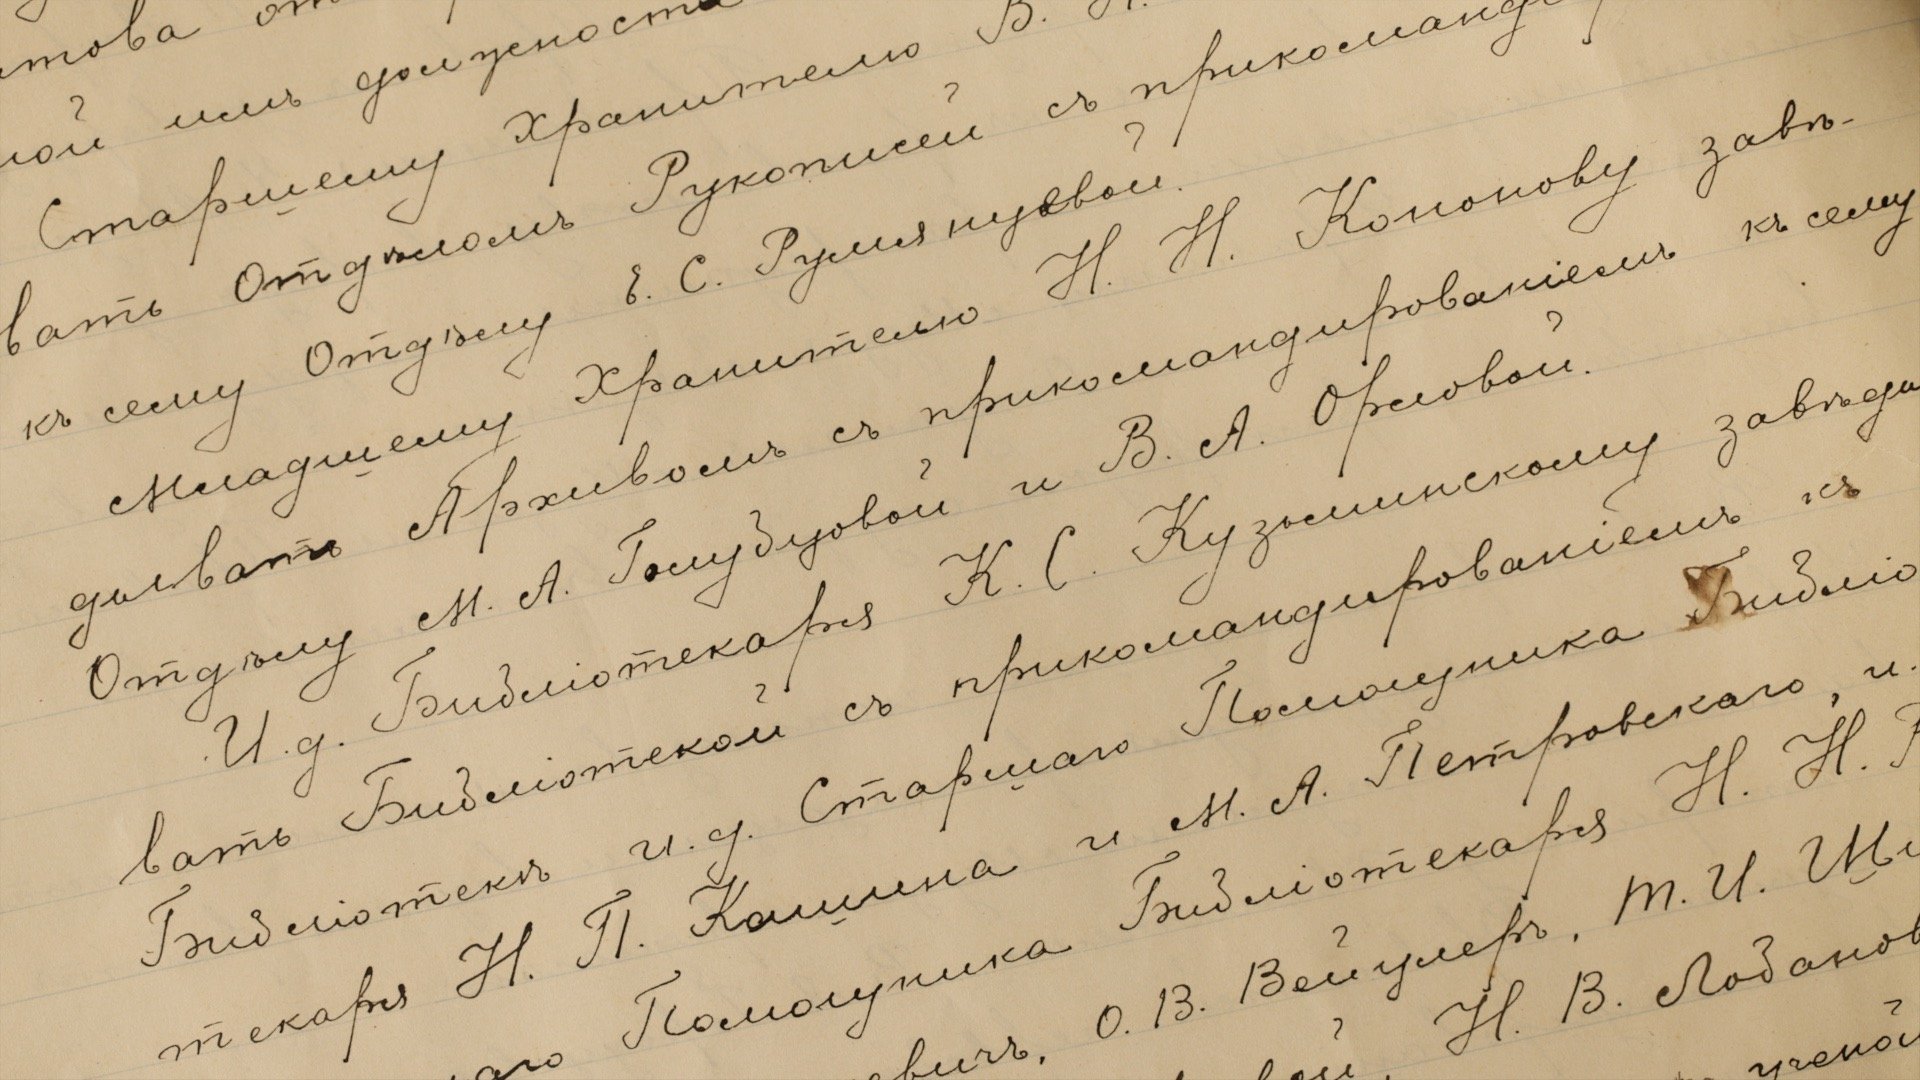 ной имъ должности
Старшему Хранителю В.
вать Отдѣломъ Рукописей съ прикоманди
къ сему Отдѣлу Е. С. Румянцевой.
Младшему Хранителю Н. Н. Кононову завѣ-
дывать Архивомъ съ прикомандированіемъ къ сему
Отдѣлу М. А. Голубцовой и В. А. Орловой.
И. д. Библіотекаря К. С. Кузьминскому завѣды
вать Библіотекой съ прикомандированіемъ къ
Библіотекѣ и. д. Старшаго Помощника Библіо
текаря Н. П. Кашина и М. А. Петровскаго, и.
Помощника Библіотекаря Н. Н.
О. В. Вейцлеръ, Т. И.
Н. В. Лобанов
ученой